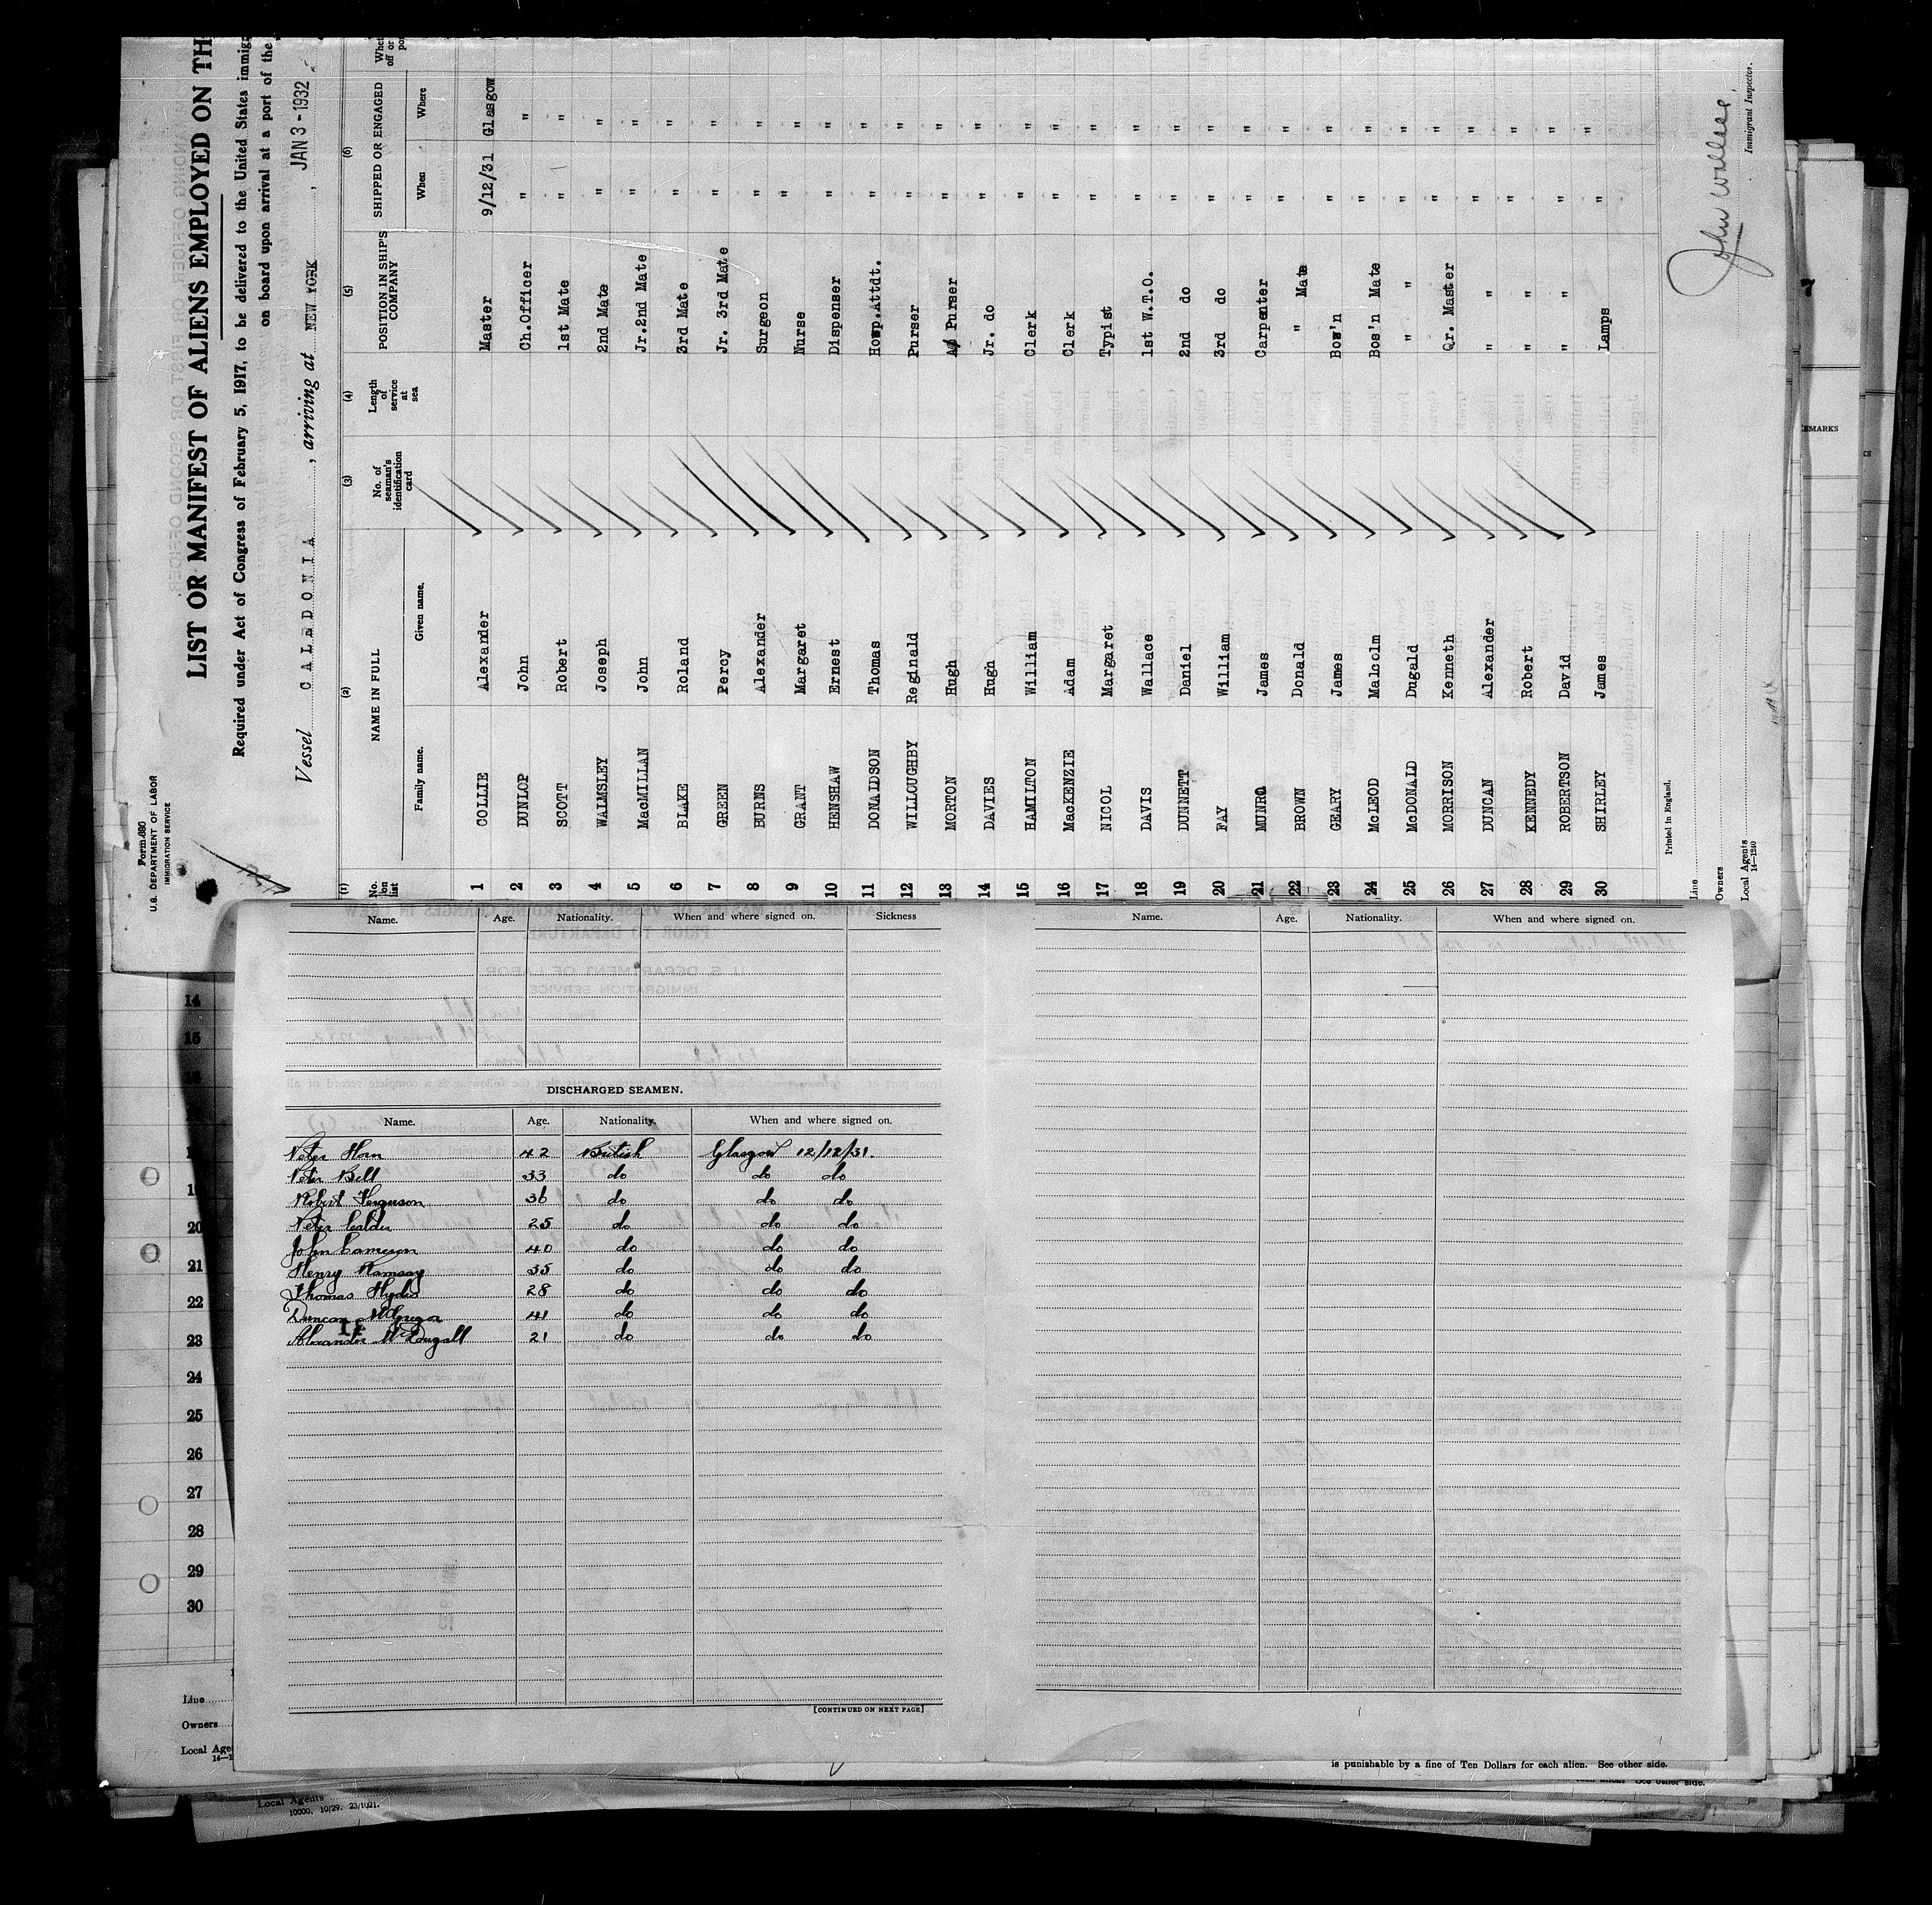 Form 680
U.S. DEPARTMENT OF LABOR
IMMIGRATION SERVICE
LIST OR MANIFEST OF ALIENS EMPLOYED ON TH
Required under Act of Congress of February 5, 1917, to be delivered to the United States immigr
on board upon arrival at a port of the
Vessel CALEDONIA, arriving at NEW YORK, JAN 3-1932
(1) (2) (3) (4) (5) (6)
No. on list NAME IN FULL No. of seaman's identification card Length of service at sea POSITION IN SHIP'S COMPANY SHIPPED OR ENGAGED Whet off or por
Family name. Given name. When Where
1 COLLIE Alexander Master 9/12/31 Glasgow
2 DUNLOP John Ch.Officer " "
3 SCOTT Robert 1st Mate " "
4 WALMSLEY Joseph 2nd Mate " "
5 MacMILLAN John Jr.2nd Mate " "
6 BLAKE Roland 3rd Mate " "
7 GREEN Percy Jr. 3rd Mate " "
8 BURNS Alexander Surgeon " "
9 GRANT Margaret Nurse " "
10 HENSHAW Ernest Dispenser " "
11 DONALDSON Thomas Hosp.Attdt. " "
12 WILLOUGHBY Reginald Purser " "
13 MORTON Hugh Purser " "
14 DAVIES Hugh Jr. do " "
15 HAMILTON William Clerk " "
16 MacKENZIE Adam Clerk " "
17 NICOL Margaret Typist " "
18 DAVIS Wallace 1st W.T.O. " "
19 DUNNETT Daniel 2nd do " "
20 FAY William 3rd do " "
21 MUNRO James Carpenter " "
22 BROWN Donald " Mate " "
23 GEARY James Bos'n " "
24 McLEOD Malcolm Bos'n Mate " "
25 McDONALD Dugald " " " "
26 MORRISON Kenneth Qr. Master " "
27 DUNCAN Alexander " " " "
28 KENNEDY Robert " " " "
29 ROBERTSON David " " " "
30 SHIRLEY James Lamps " "
Printed in England.
Line
Owners
Local Agents
14—1240
John Wallace
Immigrant Inspector.
REMARKS
Name. Age. Nationality. When and where signed on. Sickness
Name. Age. Nationality. When and where signed on.
DISCHARGED SEAMEN.
Name. Age. Nationality. When and where signed on.
Peter Horn 42 British Glasgow 12/12/31.
Peter Bell 33 do do do
Robert Ferguson 36 do do do
Peter Calder 25 do do do
John Cameron 40 do do do
Henry Ramsay 35 do do do
Thomas Hyde 28 do do do
Duncan McGregor 41 do do do
Alexander McDougall 21 do do do
[CONTINUED ON NEXT PAGE]
14
15
20
21
22
23
24
25
26
27
28
29
30
Line
Owners
Local Age
is punishable by a fine of Ten Dollars for each alien. See other side.
See other side.
Local Agents
10000. 10/29. 23/1021.